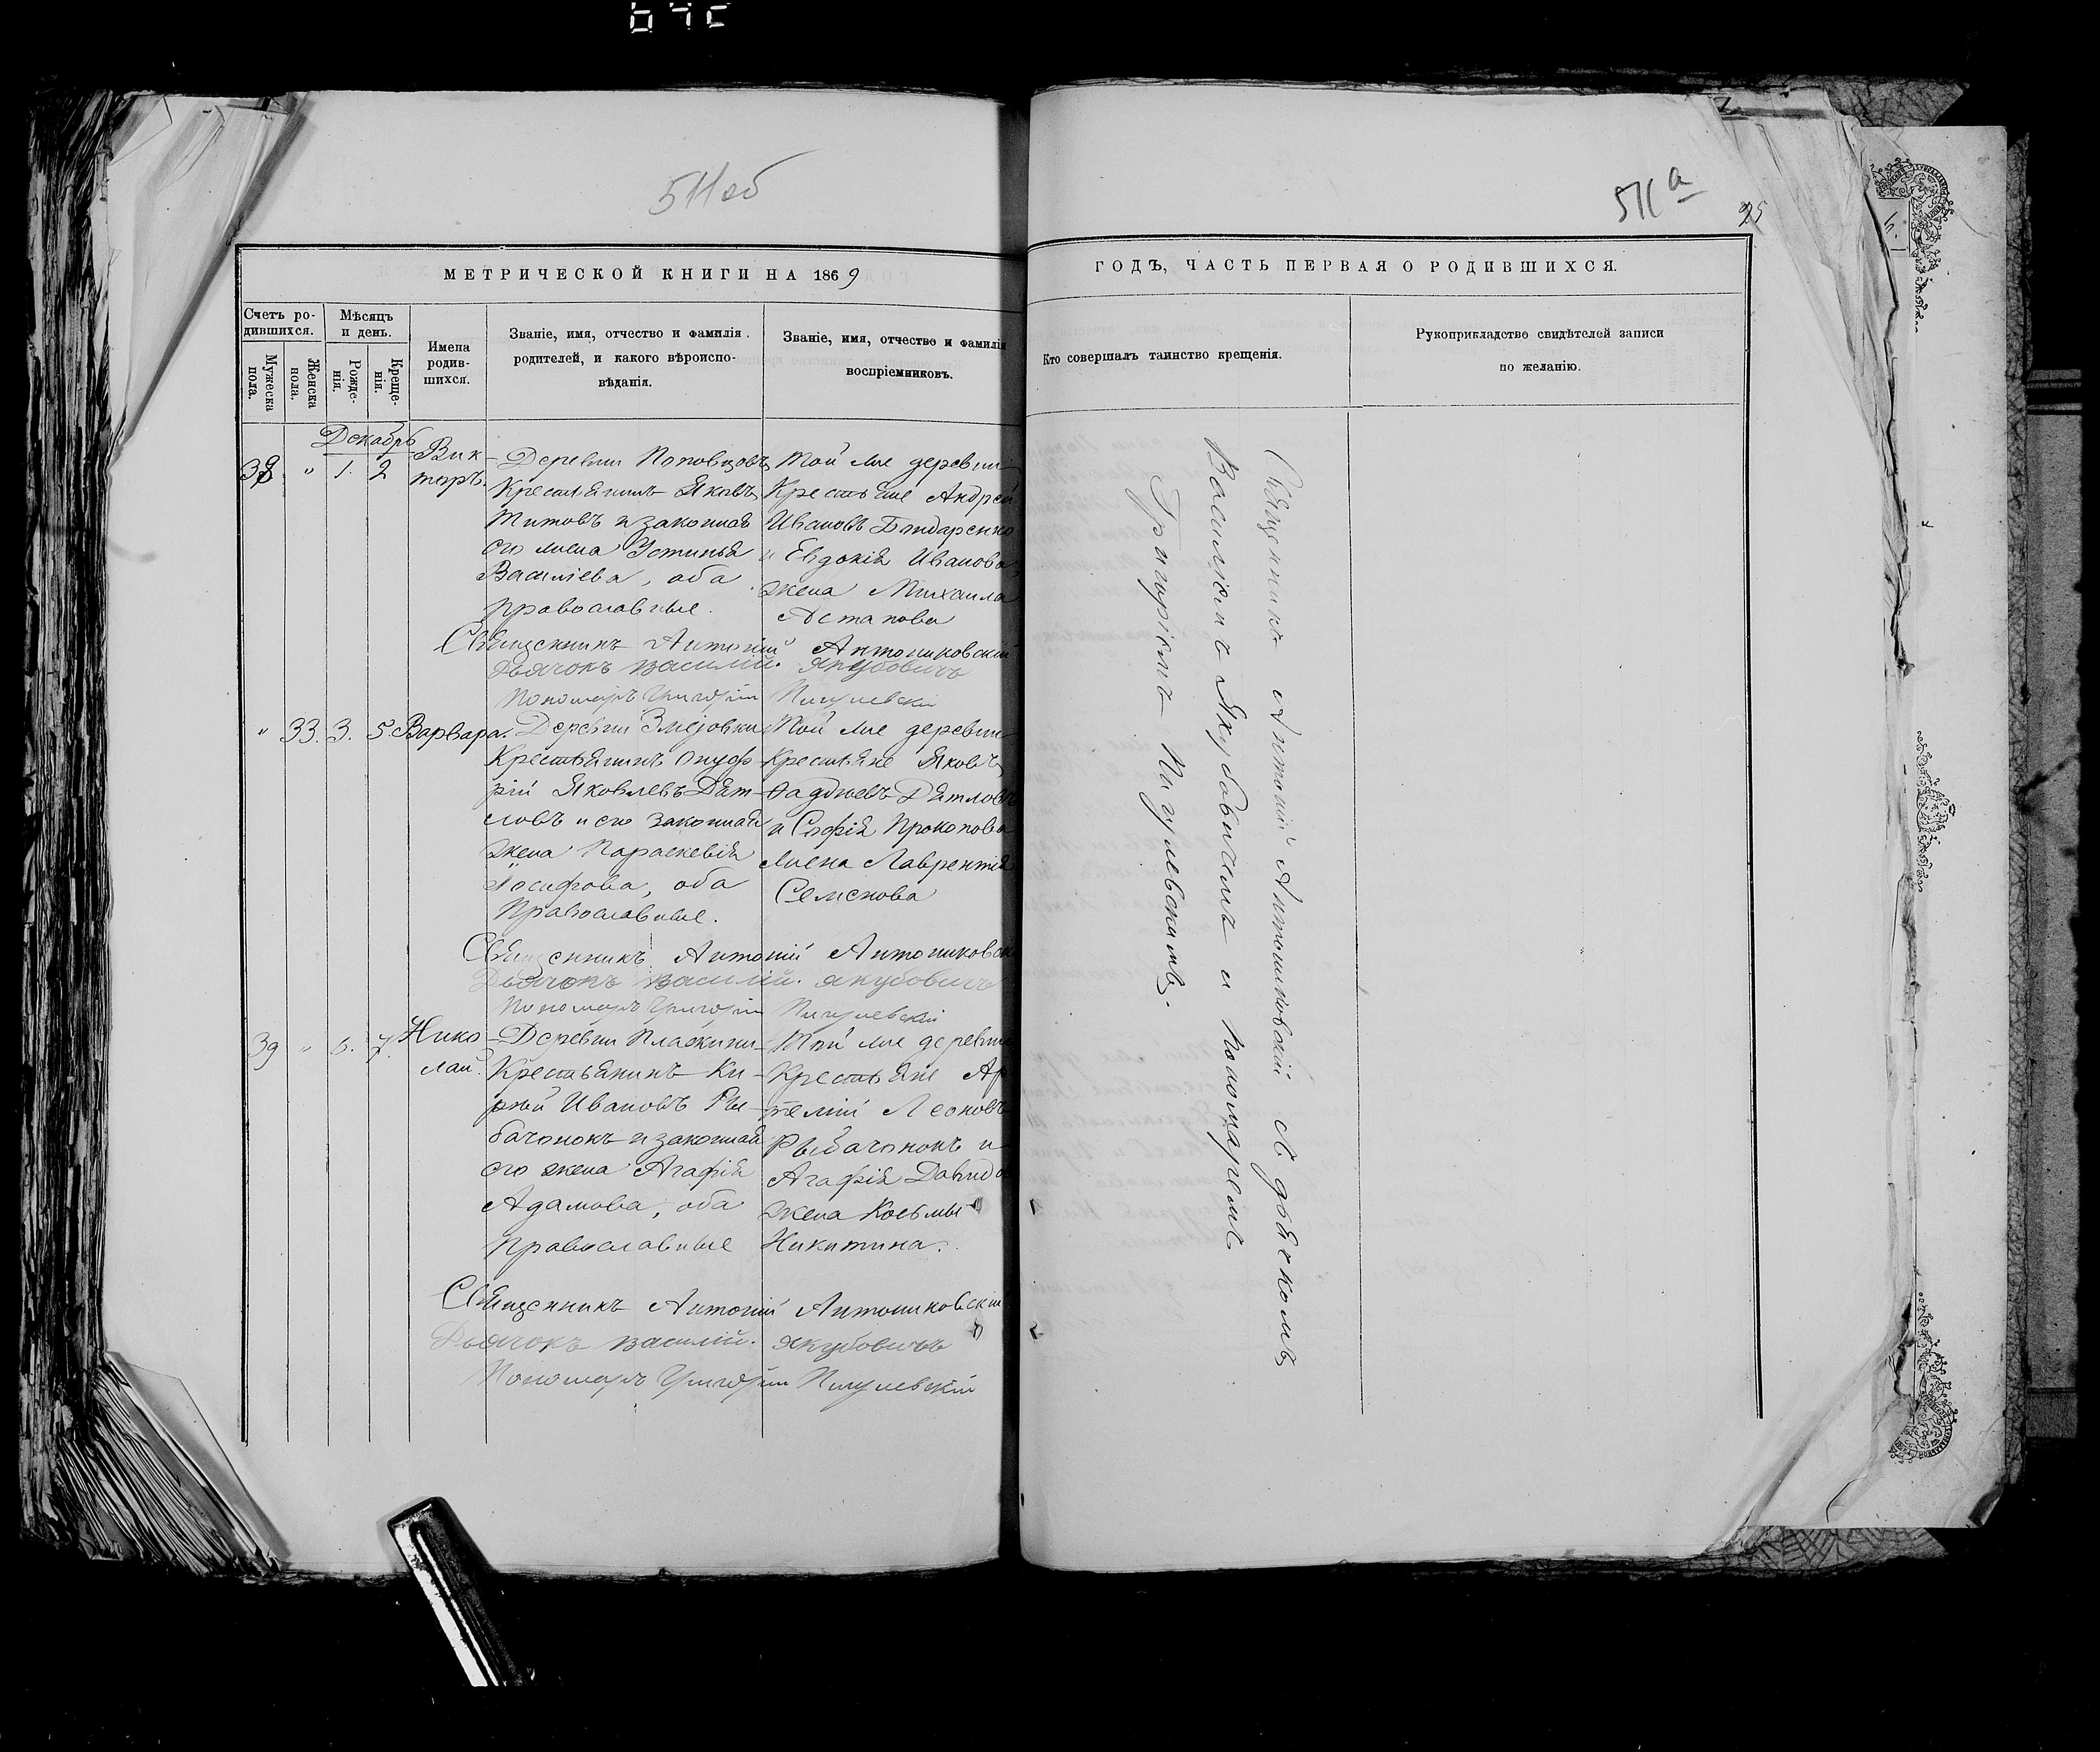 511 об
МЕТРИЧЕСКОЙ КНИГИ НА 1869
Счетъ ро-
дившихся.
Мѣсяцъ
и день.
Мужеска
пола.
Женска
пола.
Рожде-
нія.
Креще-
нія.
Имена
родив-
шихся.
Званіе, имя, отчество и фамилія
родителей, и какого вѣроиспо-
вѣданія.
Званіе, имя, отчество и фамилія
воспріемниковъ.
Декабрь
38 " 1. 2 Вик-
торъ.
Деревни Поповцовъ
Крестьянинъ Яковъ
Титовъ и законная
его жена Устинья
Василіева, оба
православные.
Той же деревни
Крестьяне Андрей
Ивановъ Бондаренко
и Евдокія Иванова
жена Михаила
Астапова
Священникъ Антоній Антониковскій
Дьячокъ Василій Якубовичъ
Пономарь Григорій Пигулевскій
" 33. 3. 5. Варвара.
Деревни Змеовки
Крестьянинъ Онуф-
рій Яковлевъ Дят-
ловъ и его законная
жена Параскевія
Іосифова, оба
Православные.
Той же деревни
Крестьяне Яковъ
Фадѣевъ Дятловъ
и Софія Прокопова
жена Лаврентія
Семенова
Священникъ Антоній Антониковск
Дьячокъ Василій Якубовичъ
Пономарь Григорій Пигулевскій
39 " 6. 7. Нико
лай.
Деревни Плаксини
Крестьянинъ Ки-
рѣй Ивановъ Ры-
бачонокъ и законная
его жена Агафія
Адамова, оба
православные
Той же деревни
Крестьяне Ар
темій Леоновъ
Рыбачонокъ и
Агафія Давидо
жена Косьмы
Никитина.
Священникъ Антоній Антониковскій
Дьячокъ Василій Якубовичъ
Пономарь Григорій Пигулевскій
511 а
25
ГОДЪ, ЧАСТЬ ПЕРВАЯ О РОДИВШИХСЯ.
Кто совершалъ таинство крещенія.
Рукоприкладство свидѣтелей записи
по желанію.
Священникъ Антоній Антониковскій съ дьячкомъ
Василіемъ Якубовичемъ и пономаремъ
Григоріемъ Пигулевскимъ.